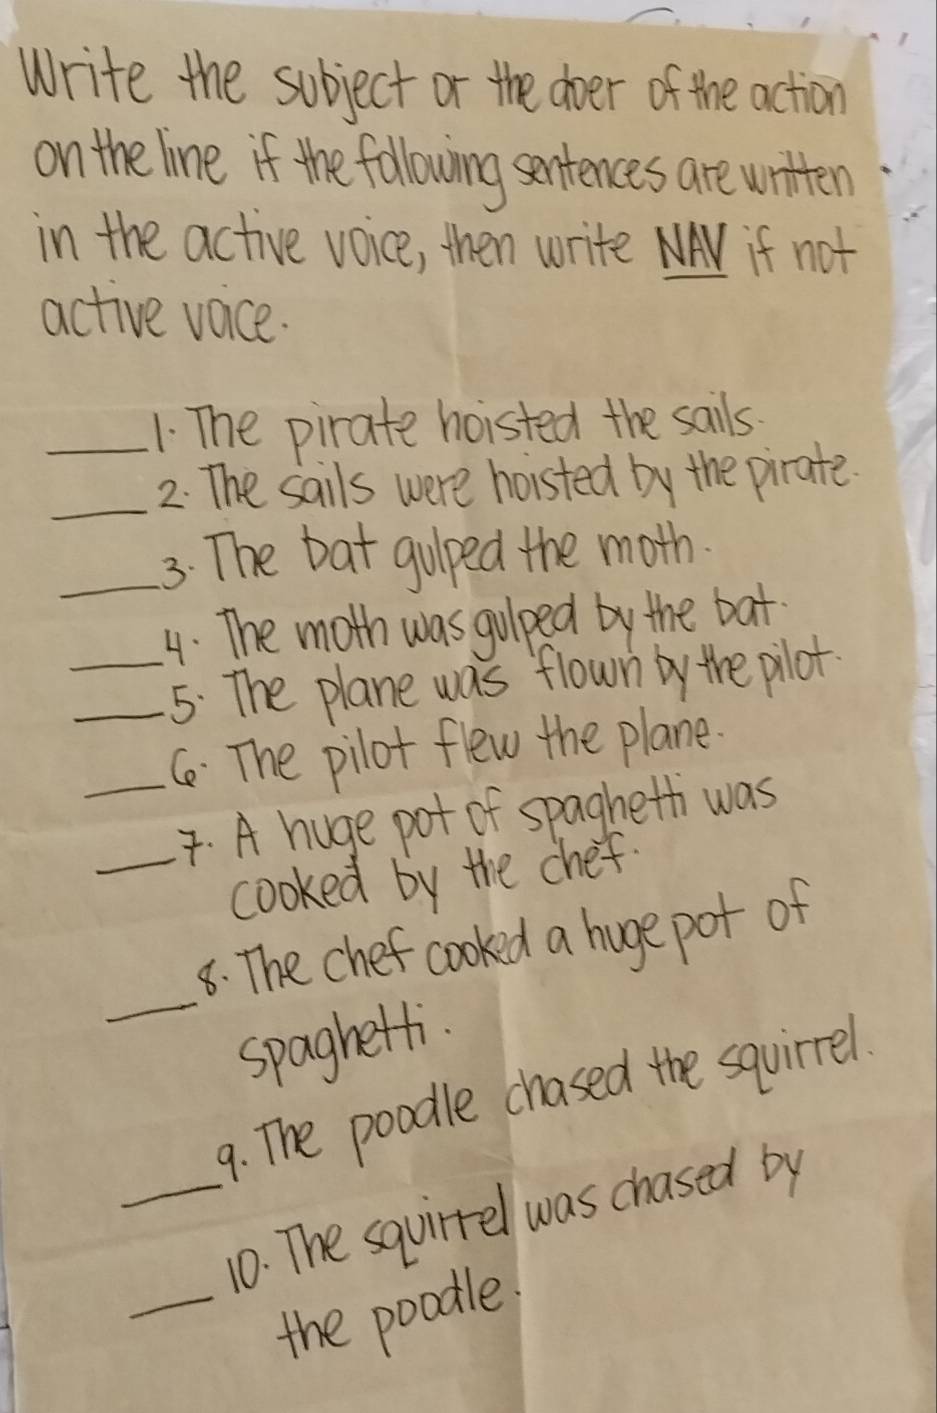 Write the subject or the doer of the action
on the line if the following sentences are written
in the active voice, then write NAV if not
active voice.
____1. The pirate hoisted the sails.
____2. The sails were hoisted by the pirate.
____3. The bat gulped the moth.
____4. The moth was gulped by the bat.
____5. The plane was flown by the pilot.
____6. The pilot flew the plane.
____7. A huge pot of spaghetti was
cooked by the chef.
____8. The chef cooked a huge pot of
spaghetti.
____9. The poodle chased the squirrel.
____10. The squirrel was chased by
the poodle.